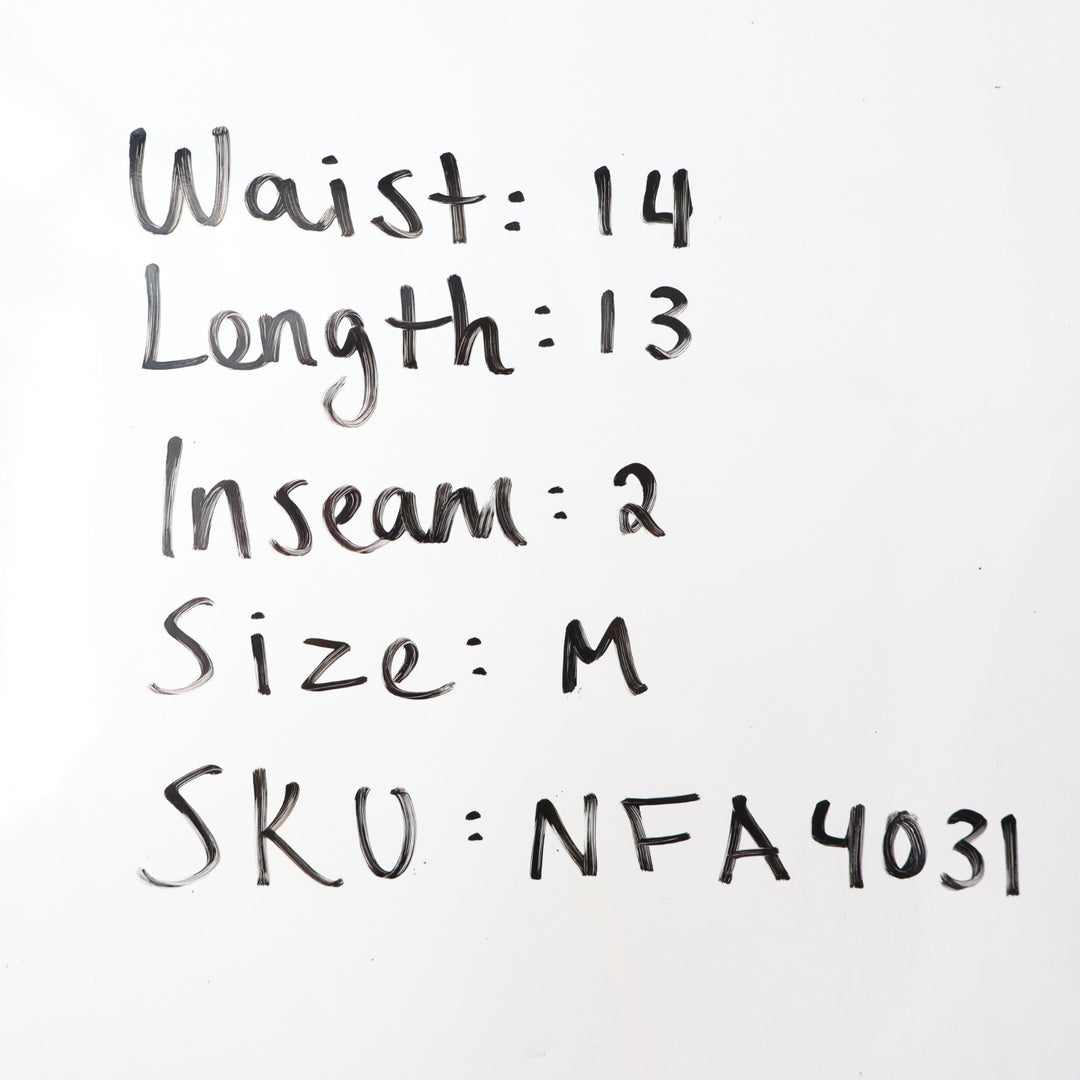 Waist: 14
Length: 13
Inseam: 2
Size: M
SKU: NFA4031